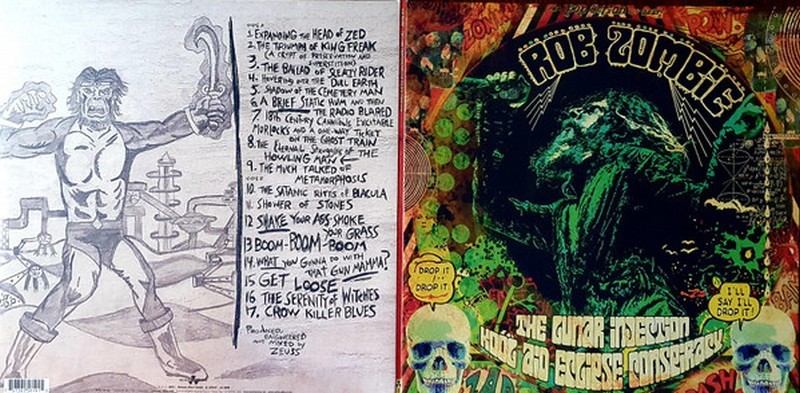 SIDE A
1. EXPANDING THE HEAD OF ZED
2. THE TRIUMPH OF KING FREAK
(A CRYPT OF PRESERVATION AND
SUPERSTITION)
3. THE BALLAD OF SLEAZY RIDER
4. HOVERING OVER THE DULL EARTH
5. SHADOW OF THE CEMETERY MAN
6. A BRIEF STATIC HUM AND THEN
THE RADIO BLARED
7. 18TH CENTURY CANNIBALS, EXCITABLE
MORLOCKS AND A ONE-WAY TICKET
ON THE GHOST TRAIN
8. THE ETERNAL STRUGGLES OF THE
HOWLING MAN
9. THE MUCH TALKED OF
METAMORPHOSIS
10. THE SATANIC RITES OF BLACULA
11. SHOWER OF STONES
12 SHAKE YOUR ASS-SMOKE
YOUR GRASS
13 BOOM-BOOM-BOOM
14. WHAT YOU GONNA DO WITH
THAT GUN MAMMA?
15 GET LOOSE
16 THE SERENITY OF WITCHES
17. CROW KILLER BLUES
PRODUCED,
ENGINEERED
AND MIXED BY
ZEUSS
ROB ZOMBIE
DROP IT
DROP IT
I'LL
SAY I'LL
DROP IT!
THE LUNAR INJECTION
KOOL AID ECLIPSE CONSPIRACY